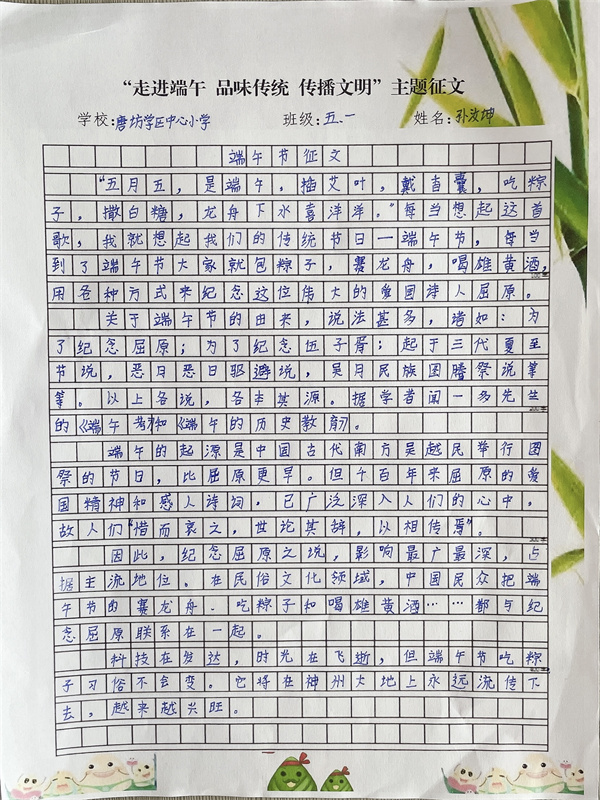 “走进端午 品味传统 传播文明”主题征文
学校：唐坊学区中心小学 班级：五.一 姓名：孙汝坤
端午节征文
“五月五，是端午，插艾叶，戴香囊，吃粽
子，撒白糖，龙舟下水喜洋洋。”每当想起这首
歌，我就想起我们的传统节日—端午节，每当
到了端午节大家就包粽子，赛龙舟，喝雄黄酒，
用各种方式来纪念这位伟大的爱国诗人屈原。
关于端午节的由来，说法甚多，诸如：为
了纪念屈原；为了纪念伍子胥；起于三代夏至
节说，恶月恶日驱避说，吴月民族图腾祭说等
等。以上各说，各本其源。据学者闻一多先生
的《端午考》和《端午的历史教育》。
端午的起源是中国古代南方吴越民举行图
祭的节日，比屈原更早。但千百年来屈原的爱
国精神和感人诗词，已广泛深入人们的心中，
故人们“惜而哀之，世论其辞，以相传焉”。
因此，纪念屈原之说，影响最广最深，占
据主流地位。在民俗文化领域，中国民众把端
午节的赛龙舟、吃粽子和喝雄黄酒……都与纪
念屈原联系在一起。
科技在发达，时光在飞逝，但端午节吃粽
子习俗不会变。它将在神州大地上永远流传下
去，越来越兴旺。